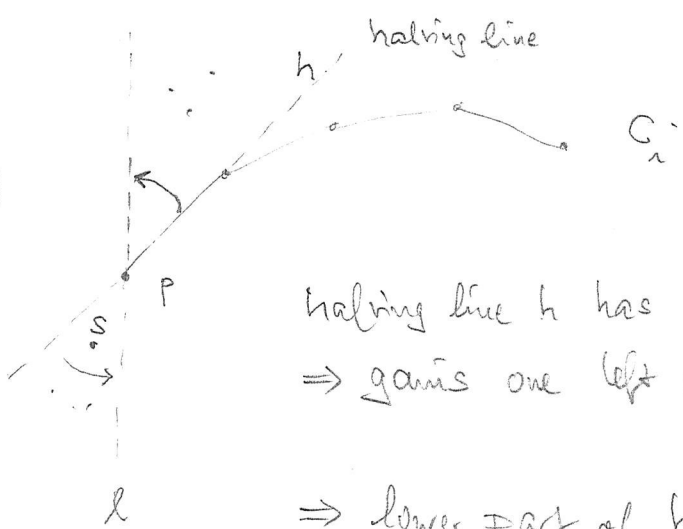 halving line
h
C_i
p
s
halving line h has
⇒ gains one left
l
⇒ lower part of